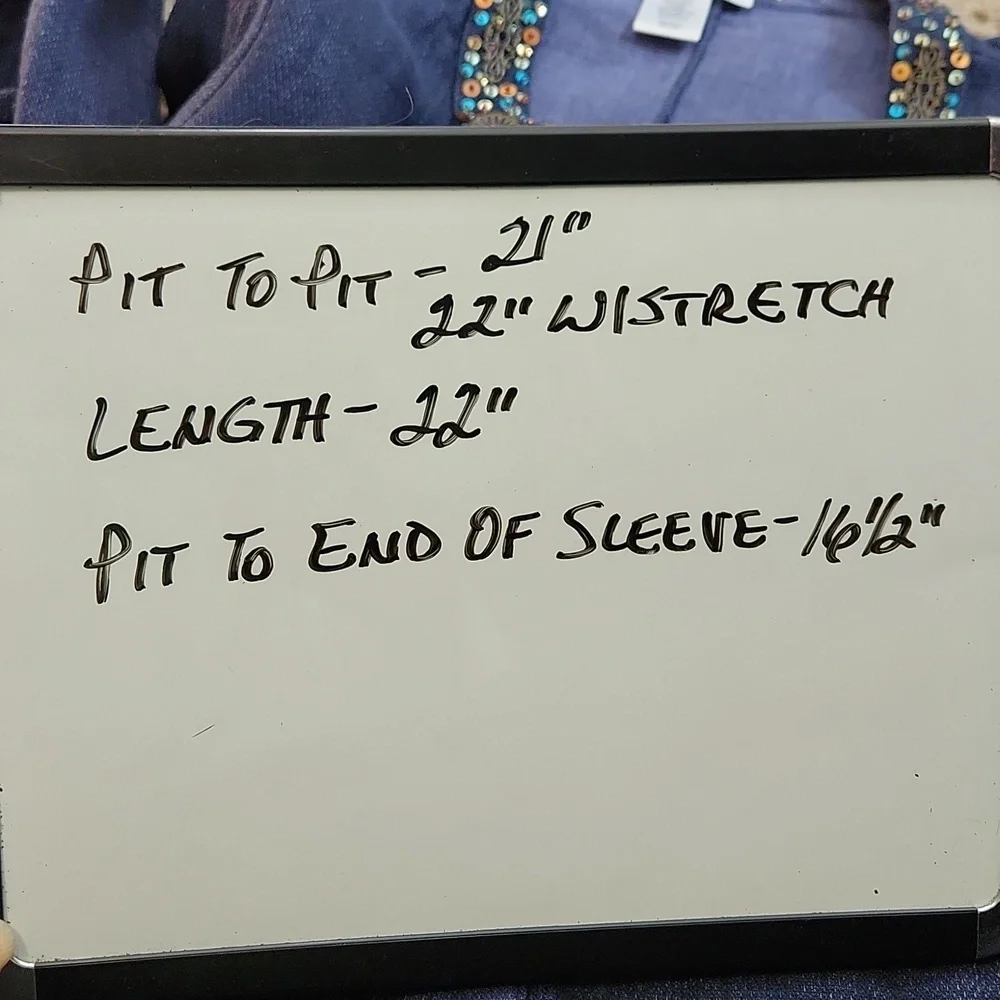 PIT TO PIT - 21"
22" W/STRETCH
LENGTH - 22"
PIT TO END OF SLEEVE - 16 1/2"